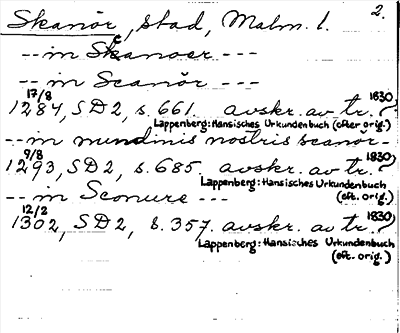 Skanör, stad, Malm. l. 2.
-- in Skanoer ---
-- in Scanör ---
17/8 1284, SD2, s. 661. avskr. av tr. 1830?
Lappenberg: Hansisches Urkundenbuch (efter orig.)
-- in nundinis nostris scanor-
9/8 1293, SD2, s. 685. avskr. av tr. 1830?
Lappenberg: Hansisches Urkundenbuch
(eft. orig.)
-- in Sconure ---
12/2 1302, SD2, s. 357. avskr. av tr. 1830?
Lappenberg: Hansisches Urkundenbuch
(eft. orig.)